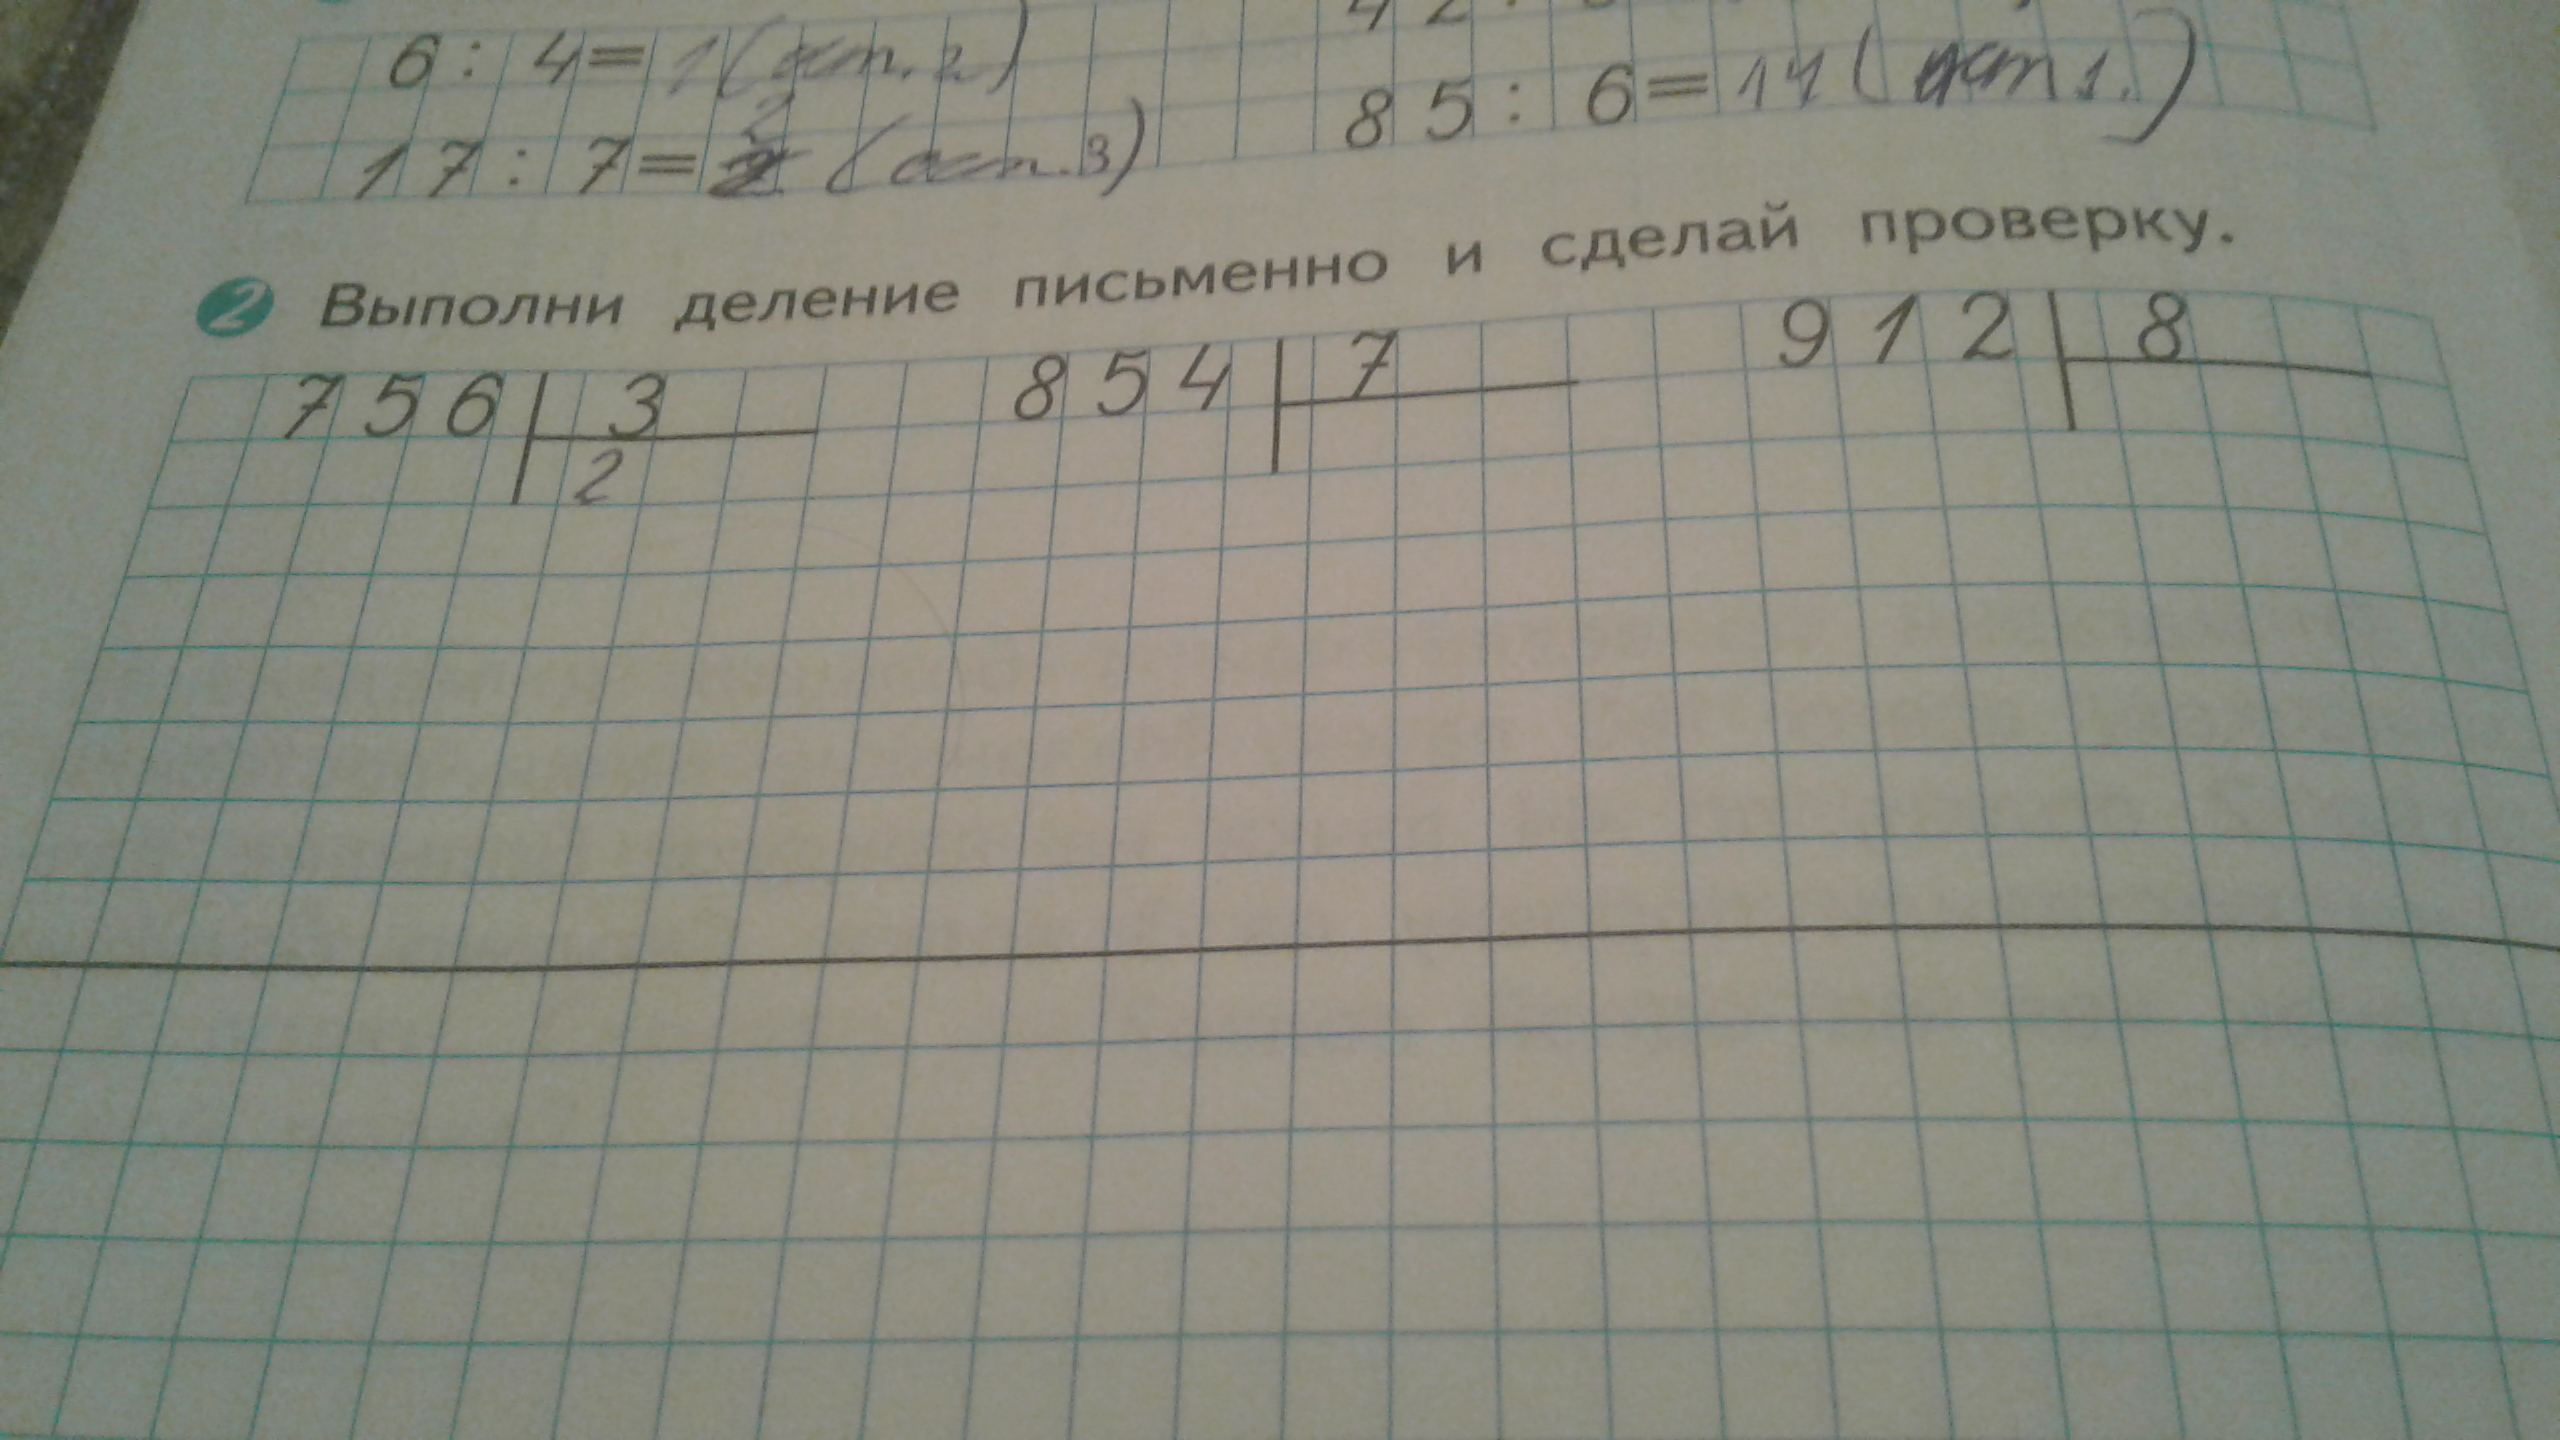 6 : 4 = 1 (ост. 2)
85 : 6 = 14 (ост 1.)
2
17 : 7 = (ост. 3)
2 Выполни деление письменно и сделай проверку.
756 3 854 7 912 8
2